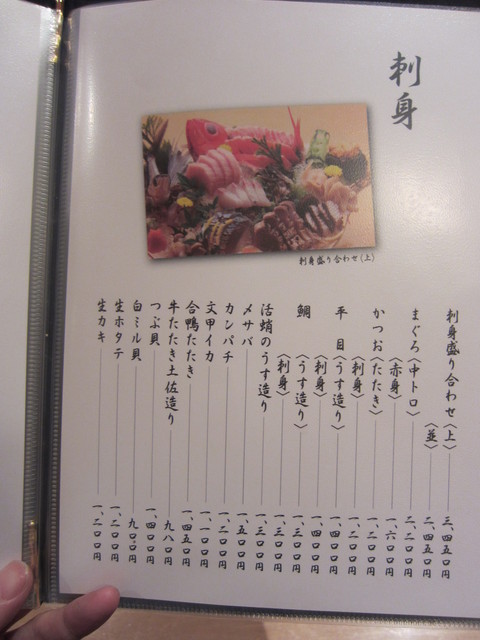 刺身
刺身盛り合わせ〈上〉
刺身盛り合わせ〈上〉 三、四五〇円
〈並〉 二、四五〇円
まぐろ〈中トロ〉 二、二〇〇円
〈赤身〉 一、六〇〇円
かつお〈たたき〉 一、二〇〇円
〈刺身〉 一、二〇〇円
平目〈うす造り〉 一、四〇〇円
〈刺身〉 一、四〇〇円
鯛〈うす造り〉 一、三〇〇円
〈刺身〉 一、三〇〇円
活蛸のうす造り 一、三〇〇円
メサバ 一、五〇〇円
カンパチ 一、二〇〇円
文甲イカ 一、一〇〇円
合鴨たたき 一、四五〇円
牛たたき土佐造り 九八〇円
つぶ貝 一、四〇〇円
白ミル貝 九〇〇円
生ホタテ 一、二〇〇円
生カキ 一、二〇〇円